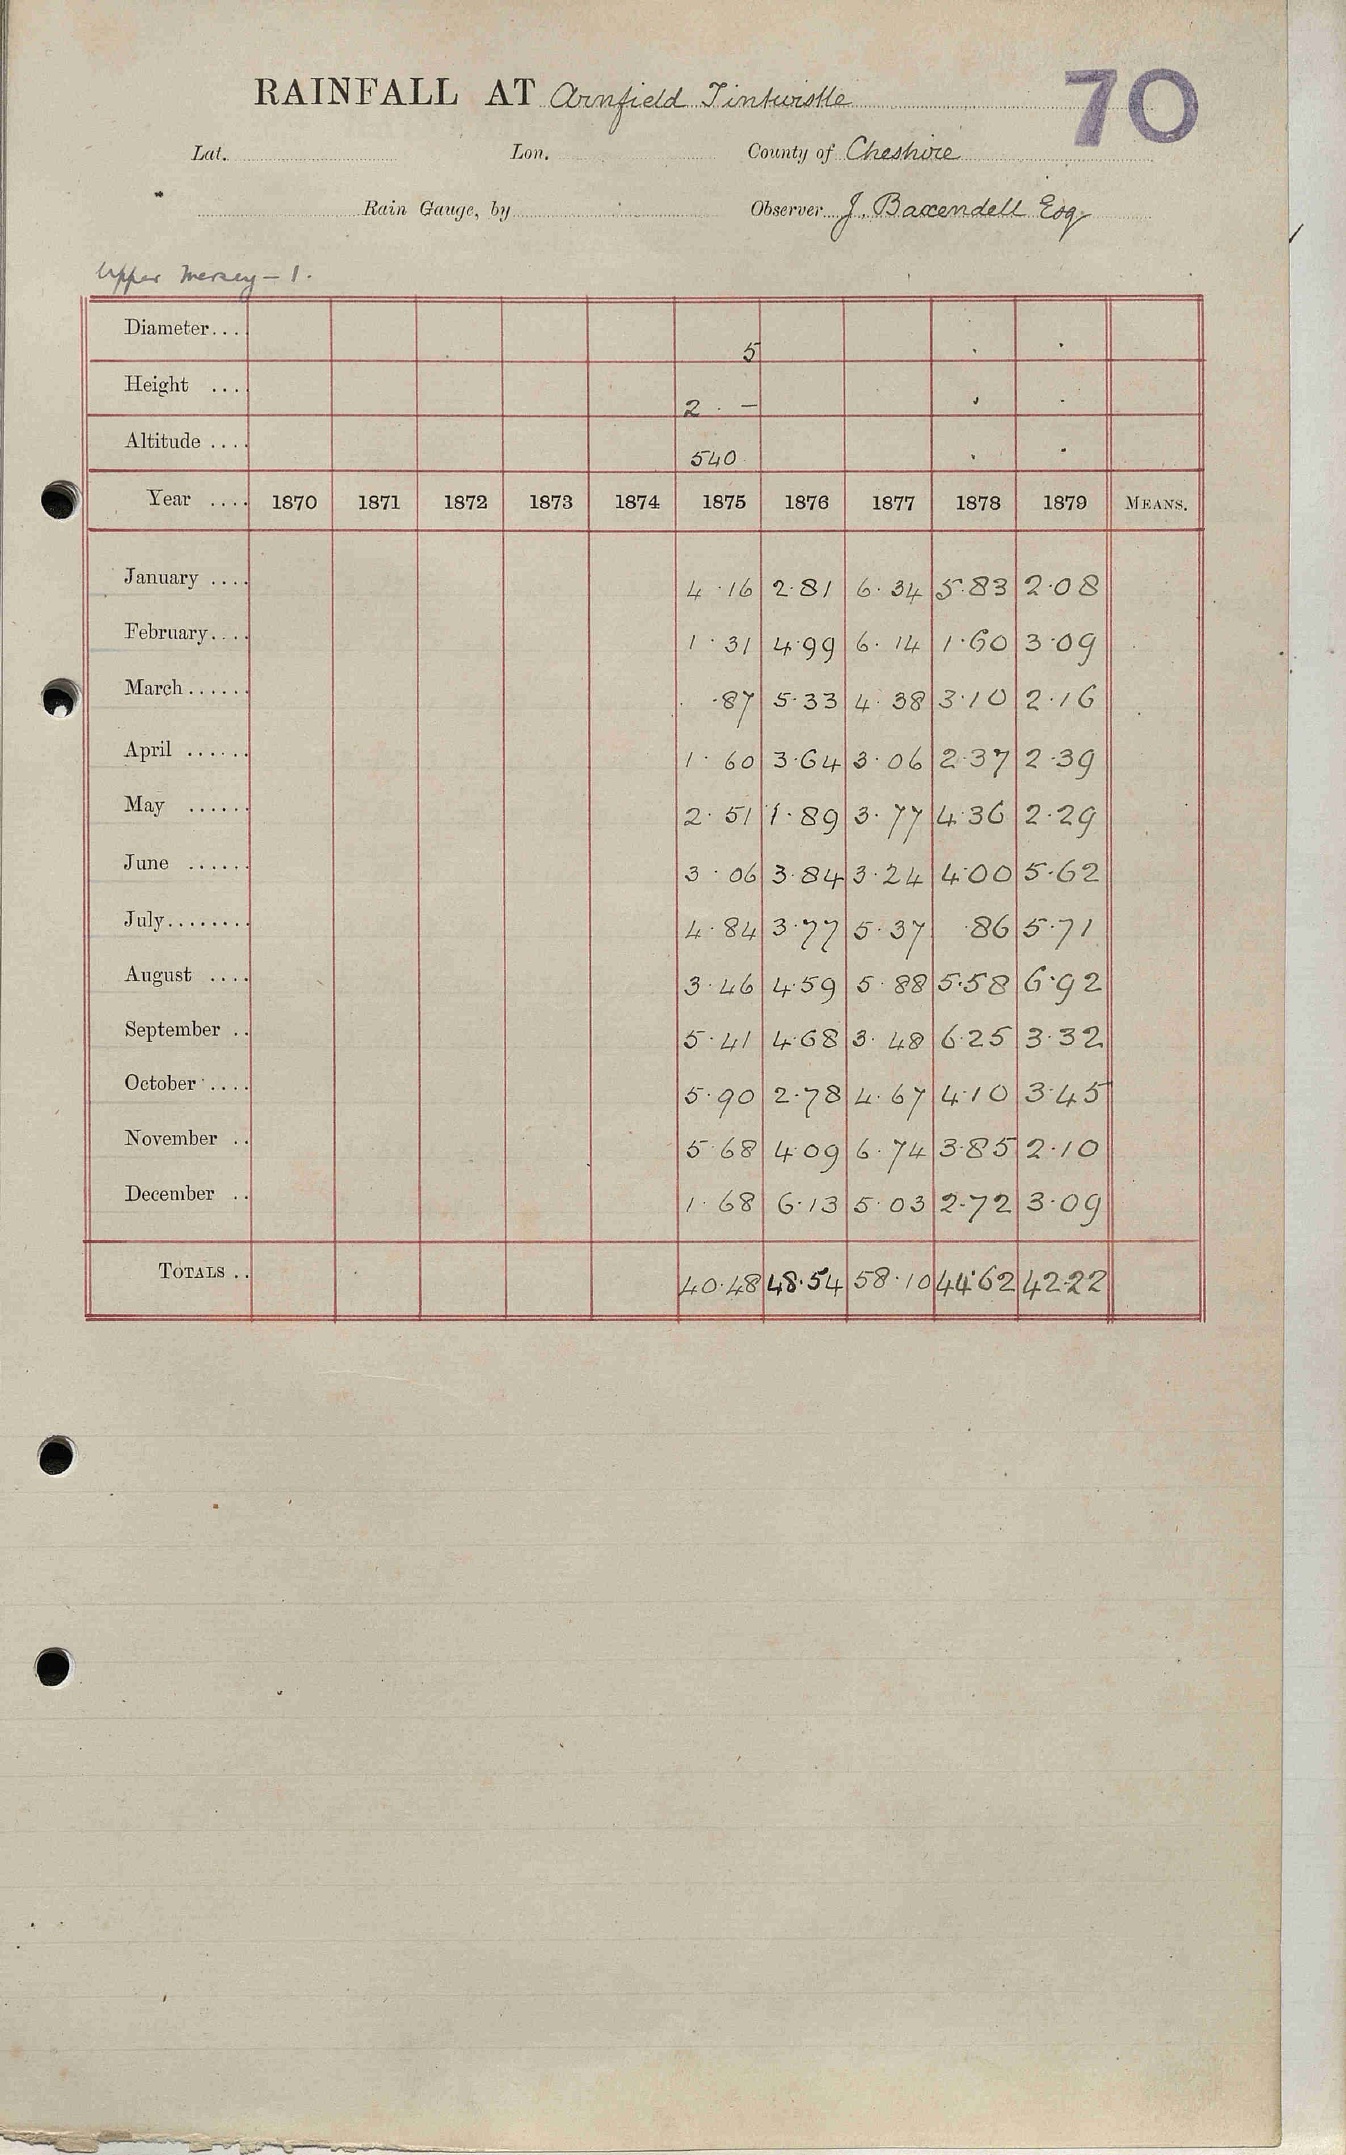 RAINFALL AT Arnfield Tintwistle 70
Lat. Lon. County of Cheshire
Rain Gauge, by Observer J. Baxendell Esq
Upper Mersey - 1.
Diameter.... 5
Height .... 2 . -
Altitude .... 540
Year .... 1870 1871 1872 1873 1874 1875 1876 1877 1878 1879 MEANS.
January .... 4.16 2.81 6.34 5.83 2.08
February.... 1.31 4.99 6.14 1.60 3.09
March...... .87 5.33 4.38 3.10 2.16
April ...... 1.60 3.64 3.06 2.37 2.39
May ...... 2.51 1.89 3.77 4.36 2.29
June ...... 3.06 3.84 3.24 4.00 5.62
July........ 4.84 3.77 5.37 .86 5.71
August .... 3.46 4.59 5.88 5.58 6.92
September .. 5.41 4.68 3.48 6.25 3.32
October .... 5.90 2.78 4.67 4.10 3.45
November .. 5.68 4.09 6.74 3.85 2.10
December .. 1.68 6.13 5.03 2.72 3.09
TOTALS .. 40.48 48.54 58.10 44.62 42.22